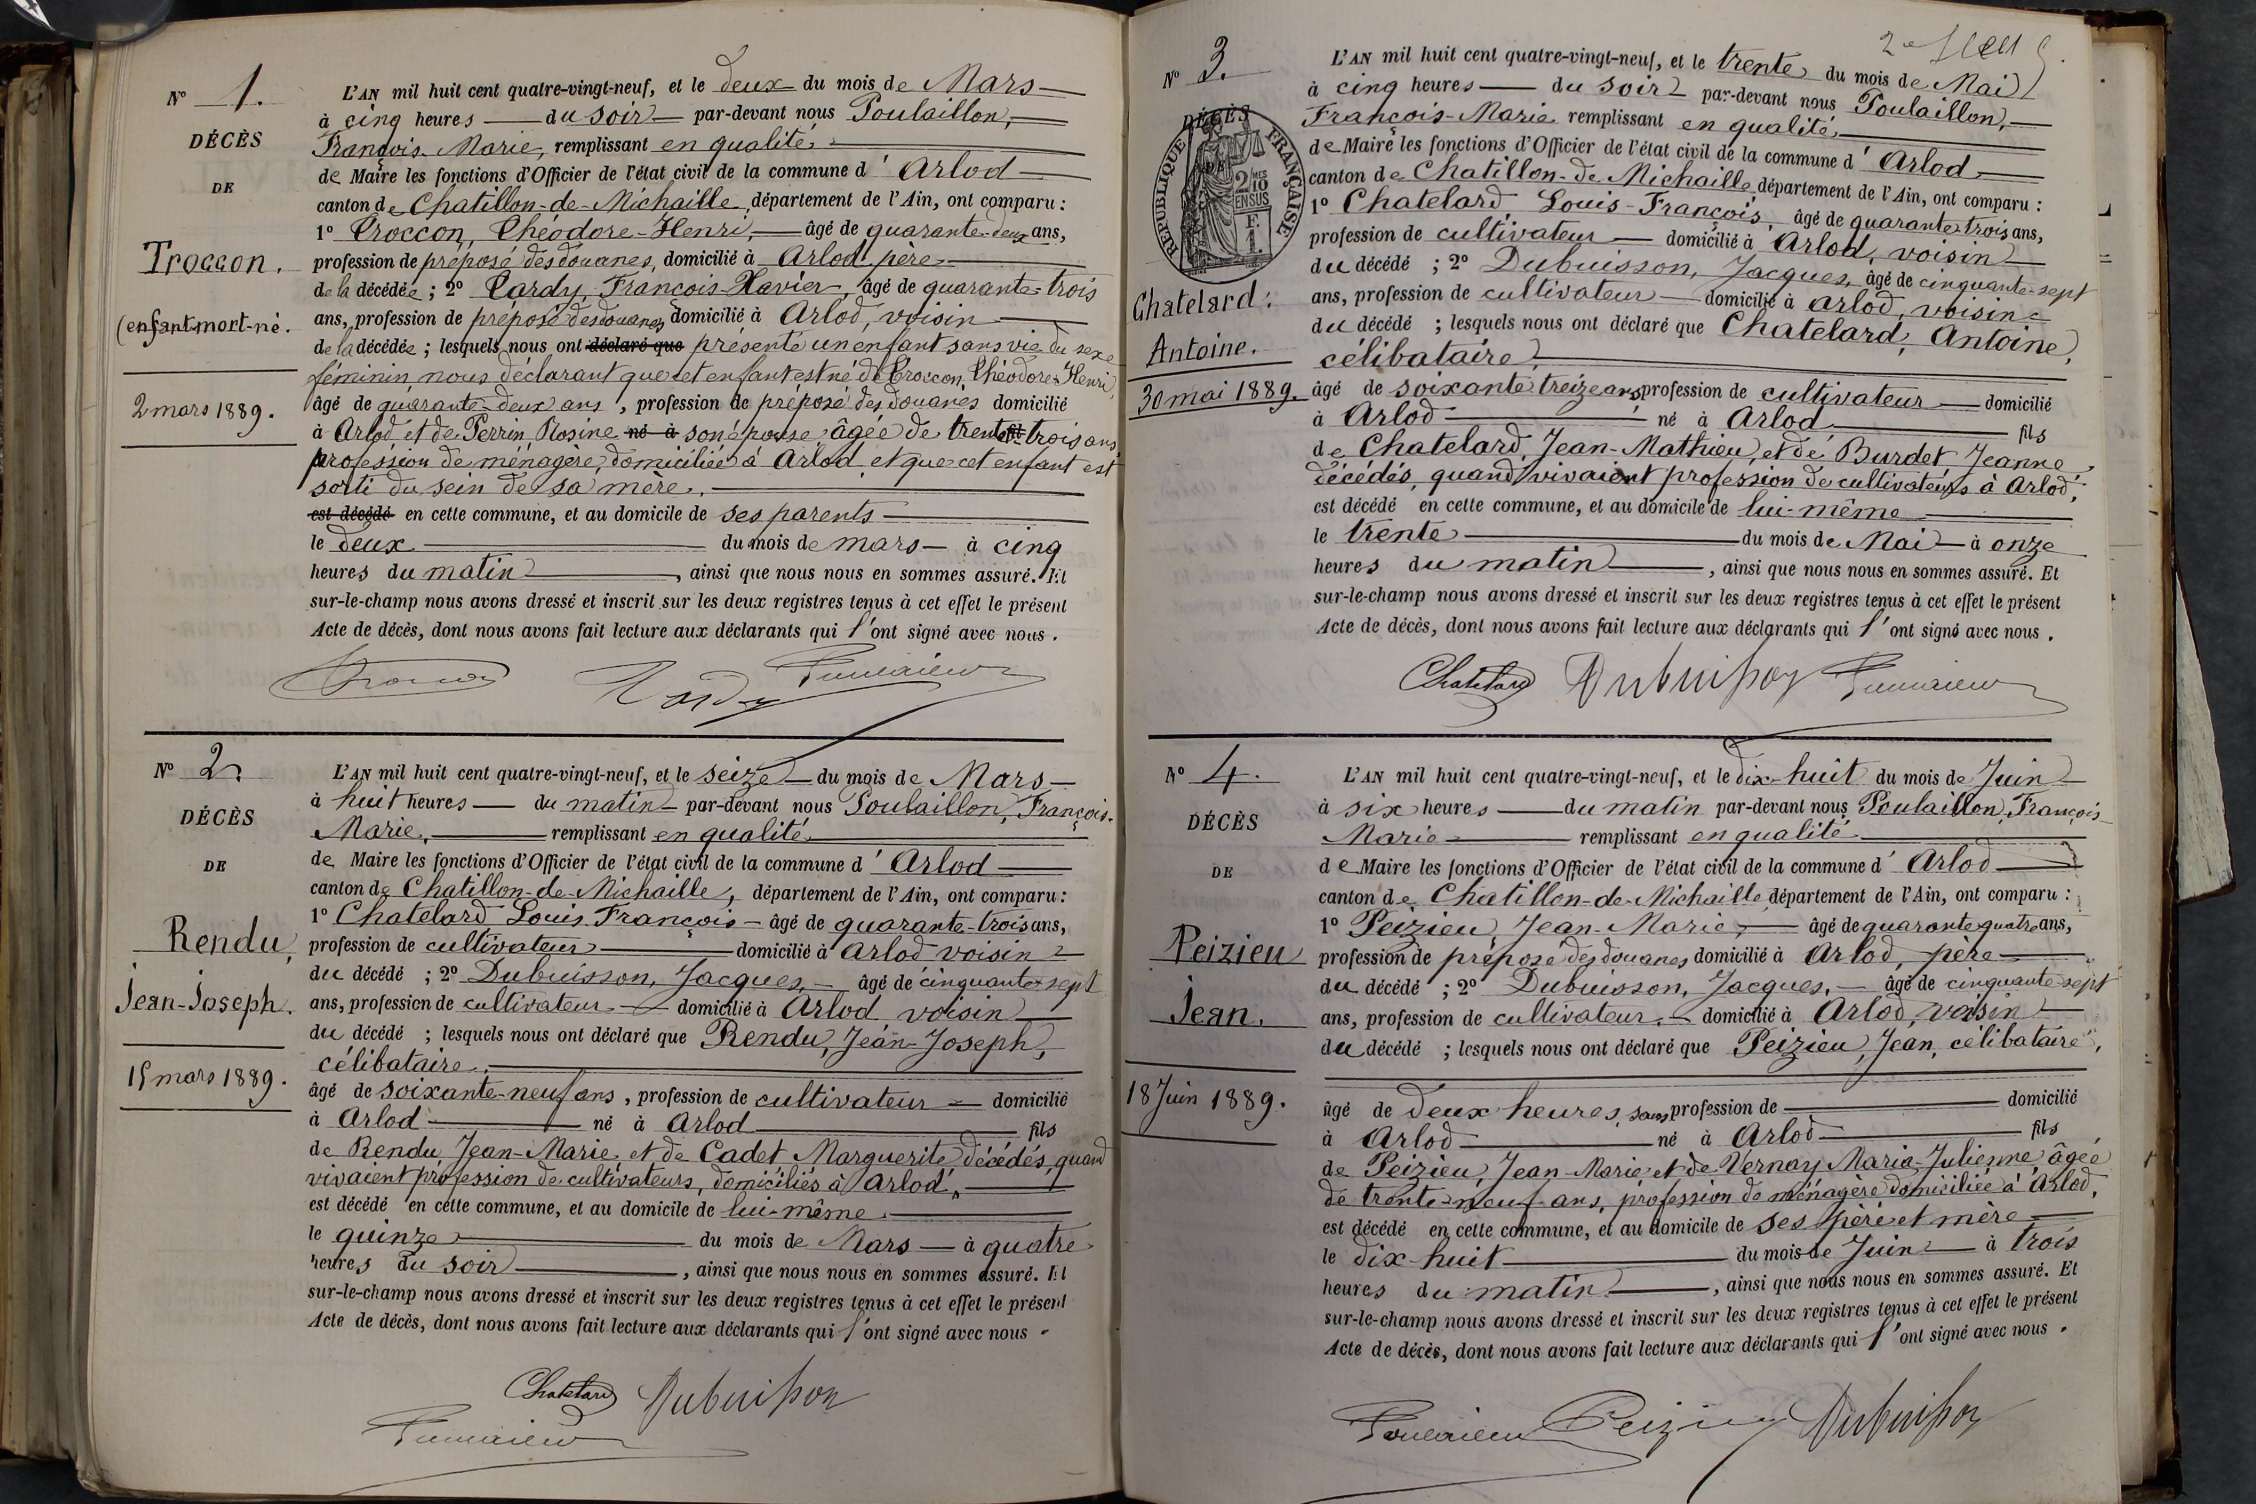 Nº 1.
DÉCÈS
DE
Troccon.
(enfant mort-né.
2 mars 1889.
L'AN mil huit cent quatre-vingt-neuf, et le deux du mois de Mars
à cinq heures du soir par-devant nous Poulaillon,
François-Marie, remplissant en qualité
de Maire les fonctions d'Officier de l'état civil de la commune d'Arlod
canton de Chatillon-de-Michaille, département de l'Ain, ont comparu :
1º Troccon, Théodore-Henri, âgé de quarante-deux ans,
profession de préposé des douanes, domicilié à Arlod père
de la décédée ; 2º Tardy, François-Xavier, âgé de quarante-trois
ans, profession de préposé des douanes domicilié à Arlod, voisin
de la décédée ; lesquels nous ont déclaré que présenté un enfant sans vie du sexe
féminin, nous déclarant que cet enfant est né de Troccon, Théodore-Henri,
âgé de quarante-deux ans, profession de préposé des douanes domicilié
à Arlod et de Perrin Rosine né à son épouse, âgée de trente trois ans,
profession de ménagère, domiciliée à Arlod, et que cet enfant est
sorti du sein de sa mère.
est décédé en cette commune, et au domicile de ses parents
le deux du mois de mars à cinq
heures du matin, ainsi que nous nous en sommes assuré. Et
sur-le-champ nous avons dressé et inscrit sur les deux registres tenus à cet effet le présent
Acte de décès, dont nous avons fait lecture aux déclarants qui l'ont signé avec nous.
Troccon Tardy Poulaillon
Nº 2.
DÉCÈS
DE
Rendu,
Jean-Joseph.
15 mars 1889.
L'AN mil huit cent quatre-vingt-neuf, et le seize du mois de Mars
à huit heures du matin par-devant nous Poulaillon, François-
Marie, remplissant en qualité
de Maire les fonctions d'Officier de l'état civil de la commune d'Arlod
canton de Chatillon-de-Michaille, département de l'Ain, ont comparu :
1º Chatelard Louis-François âgé de quarante-trois ans,
profession de cultivateur domicilié à Arlod voisin
du décédé ; 2º Dubuisson, Jacques, âgé de cinquante-sept
ans, profession de cultivateur domicilié à Arlod voisin
du décédé ; lesquels nous ont déclaré que Rendu, Jean-Joseph,
célibataire,
âgé de soixante-neuf ans, profession de cultivateur domicilié
à Arlod né à Arlod fils
de Rendu Jean-Marie et de Cadet Marguerite, décédés, quand
vivaient profession de cultivateurs, domiciliés à Arlod,
est décédé en cette commune, et au domicile de lui-même
le quinze du mois de Mars à quatre
heures du soir, ainsi que nous nous en sommes assuré. Et
sur-le-champ nous avons dressé et inscrit sur les deux registres tenus à cet effet le présent
Acte de décès, dont nous avons fait lecture aux déclarants qui l'ont signé avec nous.
Chatelard Dubuisson
Poulaillon
Nº 3.
DÉCÈS
RÉPUBLIQUE FRANÇAISE
2 MES
10
EN SUS
F.
1.
Chatelard.
Antoine.
30 mai 1889.
L'AN mil huit cent quatre-vingt-neuf, et le trente du mois de Mai
à cinq heures du soir par-devant nous Poulaillon,
François-Marie remplissant en qualité,
de Maire les fonctions d'Officier de l'état civil de la commune d'Arlod
canton de Chatillon-de-Michaille département de l'Ain, ont comparu :
1º Chatelard Louis-François, âgé de quarante trois ans,
profession de cultivateur domicilié à Arlod, voisin
du décédé ; 2º Dubuisson, Jacques, âgé de cinquante-sept
ans, profession de cultivateur domicilié à arlod, voisin
du décédé ; lesquels nous ont déclaré que Chatelard, Antoine,
célibataire,
âgé de soixante treize ans, profession de cultivateur domicilié
à Arlod né à Arlod fils
de Chatelard, Jean-Mathieu, et de Burdet, Jeanne,
décédés, quand vivaient profession de cultivateurs à Arlod,
est décédé en cette commune, et au domicile de lui-même
le trente du mois de Mai à onze
heures du matin, ainsi que nous nous en sommes assuré. Et
sur-le-champ nous avons dressé et inscrit sur les deux registres tenus à cet effet le présent
Acte de décès, dont nous avons fait lecture aux déclarants qui l'ont signé avec nous.
Chatelard Dubuisson Poulaillon
Nº 4.
DÉCÈS
DE
Peizieu
Jean.
18 Juin 1889.
L'AN mil huit cent quatre-vingt-neuf, et le dix-huit du mois de Juin
à six heures du matin par-devant nous Poulaillon, François-
Marie remplissant en qualité
de Maire les fonctions d'Officier de l'état civil de la commune d'Arlod
canton de Chatillon-de-Michaille, département de l'Ain, ont comparu :
1º Peizieu, Jean-Marie, âgé de quarante quatre ans,
profession de préposé des douanes domicilié à Arlod, père
du décédé ; 2º Dubuisson, Jacques, âgé de cinquante-sept
ans, profession de cultivateur, domicilié à Arlod, voisin
du décédé ; lesquels nous ont déclaré que Peizieu, Jean, célibataire,
âgé de deux heures, sans profession de domicilié
à Arlod né à Arlod fils
de Peizieu, Jean-Marie et de Vernay Maria-Julienne, âgée
de trente-neuf ans, profession de ménagère domiciliée à Arlod,
est décédé en cette commune, et au domicile de ses père et mère
le dix-huit du mois de Juin à trois
heures du matin, ainsi que nous nous en sommes assuré. Et
sur-le-champ nous avons dressé et inscrit sur les deux registres tenus à cet effet le présent
Acte de décès, dont nous avons fait lecture aux déclarants qui l'ont signé avec nous.
Poulaillon Peizieu Dubuisson